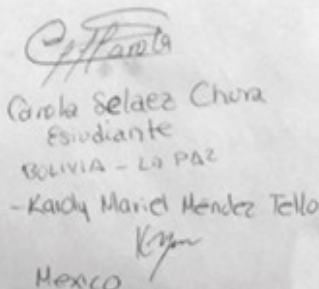 Carola
Carola Selaez Chura
Estudiante
BOLIVIA - LA PAZ
- Kardy Mariel Mendez Tello
Mexico